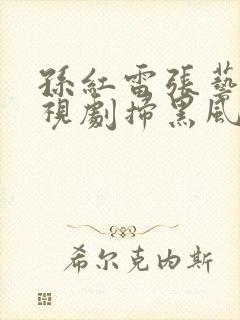 孫紅雷張藝
視劇掃黑風
希尔克内斯